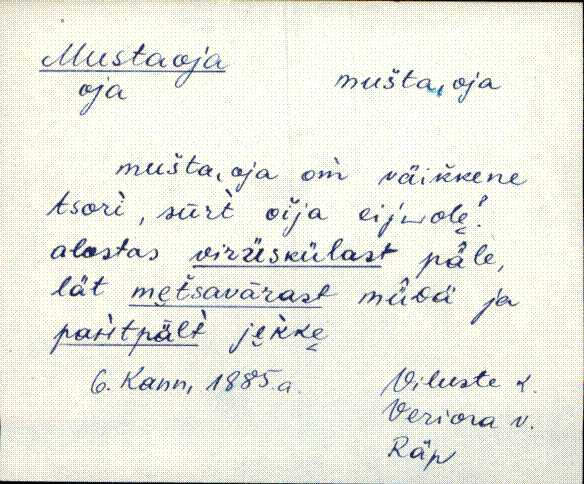 Mustaoja mušta,oja
oja
mušta,oja om̀ väikkene
tsori̇̀, sūrt̀ oija eijwolȩ!
alostas virüskülast pǟle,
lǟt mȩtšavārast mǖdä ja
paŕitpǟlt̀ jȩkkȩ
G. Kann, 1885 a. Viluste k.
Veriora v.
Räp